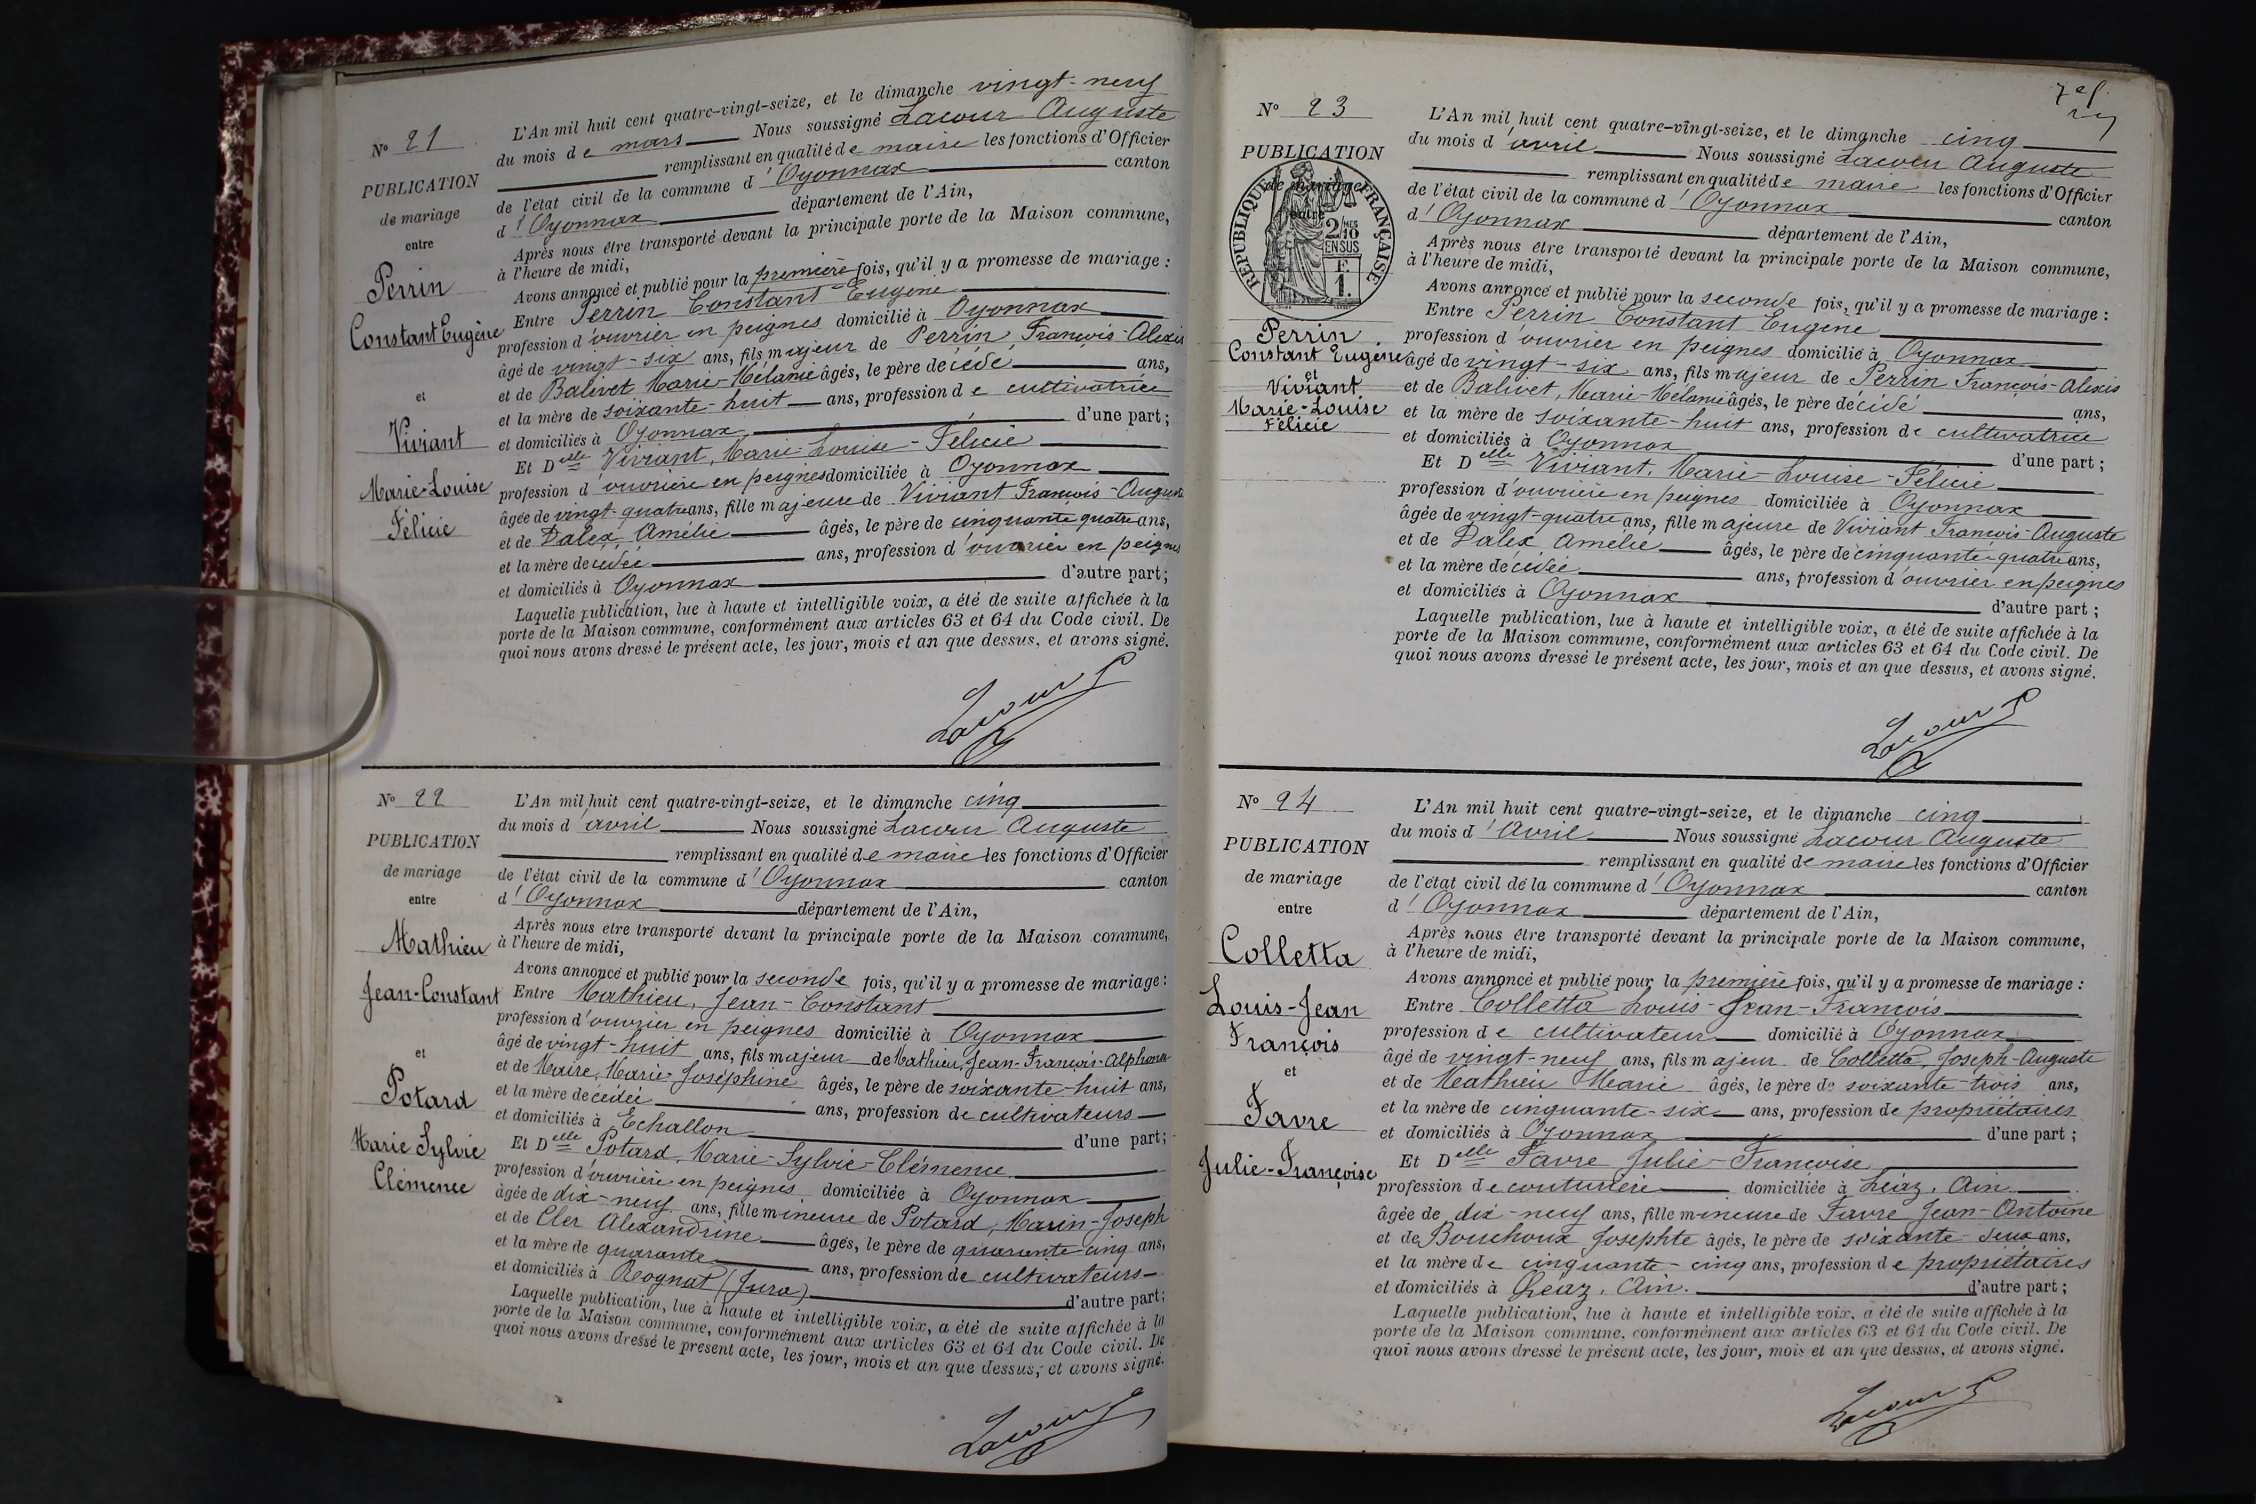 N° 21
PUBLICATION
de mariage
entre
Perrin
Constant Eugène
et
Viviant
Marie-Louise
Félicie
L'An mil huit cent quatre-vingt-seize, et le dimanche vingt-neuf
du mois de mars Nous soussigné Lacour Auguste
remplissant en qualité de maire les fonctions d'Officier
de l'état civil de la commune d'Oyonnax canton
d'Oyonnax département de l'Ain,
Après nous être transporté devant la principale porte de la Maison commune,
à l'heure de midi,
Avons annoncé et publié pour la première fois, qu'il y a promesse de mariage :
Entre Perrin Constant-Eugène
profession d'ouvrier en peignes domicilié à Oyonnax
âgé de vingt-six ans, fils majeur de Perrin François-Alexis
et de Balivet Marie-Mélanie âgés, le père décédé ans,
et la mère de soixante-huit ans, profession de cultivatrice
et domiciliés à Oyonnax d'une part ;
Et Delle Viviant, Marie-Louise-Félicie
profession d'ouvrière en peignes domiciliée à Oyonnax
âgée de vingt-quatre ans, fille majeure de Viviant François-Auguste
et de Dalex Amélie âgés, le père de cinquante quatre ans,
et la mère décédée ans, profession d'ouvrier en peignes
et domiciliés à Oyonnax d'autre part ;
Laquelle publication, lue à haute et intelligible voix, a été de suite affichée à la
porte de la Maison commune, conformément aux articles 63 et 64 du Code civil. De
quoi nous avons dressé le présent acte, les jour, mois et an que dessus, et avons signé.
Lacour
N° 22
PUBLICATION
de mariage
entre
Mathieu
Jean-Constant
et
Potard
Marie Sylvie
Clémence
L'An mil huit cent quatre-vingt-seize, et le dimanche cinq
du mois d'avril Nous soussigné Lacour Auguste
remplissant en qualité de maire les fonctions d'Officier
de l'état civil de la commune d'Oyonnax canton
d'Oyonnax département de l'Ain,
Après nous être transporté devant la principale porte de la Maison commune,
à l'heure de midi,
Avons annoncé et publié pour la seconde fois, qu'il y a promesse de mariage :
Entre Mathieu, Jean-Constant
profession d'ouvrier en peignes domicilié à Oyonnax
âgé de vingt-huit ans, fils majeur de Mathieu, Jean-François-Alphonse
et de Maire, Marie-Joséphine âgés, le père de soixante-huit ans,
et la mère décédée ans, profession de cultivateurs
et domiciliés à Echallon d'une part ;
Et Delle Potard, Marie-Sylvie-Clémence
profession d'ouvrière en peignes domiciliée à Oyonnax
âgée de dix-neuf ans, fille mineure de Potard, Marin-Joseph
et de Cler Alexandrine âgés, le père de quarante cinq ans,
et la mère de quarante ans, profession de cultivateurs
et domiciliés à Rognat (Jura) d'autre part ;
Laquelle publication, lue à haute et intelligible voix, a été de suite affichée à la
porte de la Maison commune, conformément aux articles 63 et 64 du Code civil. De
quoi nous avons dressé le présent acte, les jour, mois et an que dessus, et avons signé.
Lacour
7e f.
N° 23
PUBLICATION
de mariage
entre
RÉPUBLIQUE FRANÇAISE
2/10 MES
EN SUS
F.
1.
Perrin
Constant Eugène
et
Viviant
Marie-Louise
Félicie
L'An mil huit cent quatre-vingt-seize, et le dimanche cinq
du mois d'avril Nous soussigné Lacour Auguste
remplissant en qualité de maire les fonctions d'Officier
de l'état civil de la commune d'Oyonnax canton
d'Oyonnax département de l'Ain,
Après nous être transporté devant la principale porte de la Maison commune,
à l'heure de midi,
Avons annoncé et publié pour la seconde fois, qu'il y a promesse de mariage :
Entre Perrin Constant Eugène
profession d'ouvrier en peignes domicilié à Oyonnax
âgé de vingt-six ans, fils majeur de Perrin François-Alexis
et de Balivet, Marie-Mélanie âgés, le père décédé ans,
et la mère de soixante-huit ans, profession de cultivatrice
et domiciliés à Oyonnax d'une part ;
Et Delle Viviant, Marie-Louise-Félicie
profession d'ouvrière en peignes domiciliée à Oyonnax
âgée de vingt-quatre ans, fille majeure de Viviant François-Auguste
et de Dalex Amélie âgés, le père de cinquante-quatre ans,
et la mère décédée ans, profession d'ouvrier en peignes
et domiciliés à Oyonnax d'autre part ;
Laquelle publication, lue à haute et intelligible voix, a été de suite affichée à la
porte de la Maison commune, conformément aux articles 63 et 64 du Code civil. De
quoi nous avons dressé le présent acte, les jour, mois et an que dessus, et avons signé.
Lacour
N° 24
PUBLICATION
de mariage
entre
Colletta
Louis-Jean
François
et
Favre
Julie-Françoise
L'An mil huit cent quatre-vingt-seize, et le dimanche cinq
du mois d'Avril Nous soussigné Lacour Auguste
remplissant en qualité de maire les fonctions d'Officier
de l'état civil de la commune d'Oyonnax canton
d'Oyonnax département de l'Ain,
Après nous être transporté devant la principale porte de la Maison commune,
à l'heure de midi,
Avons annoncé et publié pour la première fois, qu'il y a promesse de mariage :
Entre Colletta Louis-Jean-François
profession de cultivateur domicilié à Oyonnax
âgé de vingt-neuf ans, fils majeur de Colletta, Joseph-Auguste
et de Mathieu Marie âgés, le père de soixante-trois ans,
et la mère de cinquante-six ans, profession de propriétaires
et domiciliés à Oyonnax d'une part ;
Et Delle Favre Julie-Françoise
profession de couturière domiciliée à Léaz, Ain
âgée de dix-neuf ans, fille mineure de Favre Jean-Antoine
et de Bouchoux Josephte âgés, le père de soixante-deux ans,
et la mère de cinquante-cinq ans, profession de propriétaires
et domiciliés à Léaz, Ain. d'autre part ;
Laquelle publication, lue à haute et intelligible voix, a été de suite affichée à la
porte de la Maison commune, conformément aux articles 63 et 64 du Code civil. De
quoi nous avons dressé le présent acte, les jour, mois et an que dessus, et avons signé.
Lacour